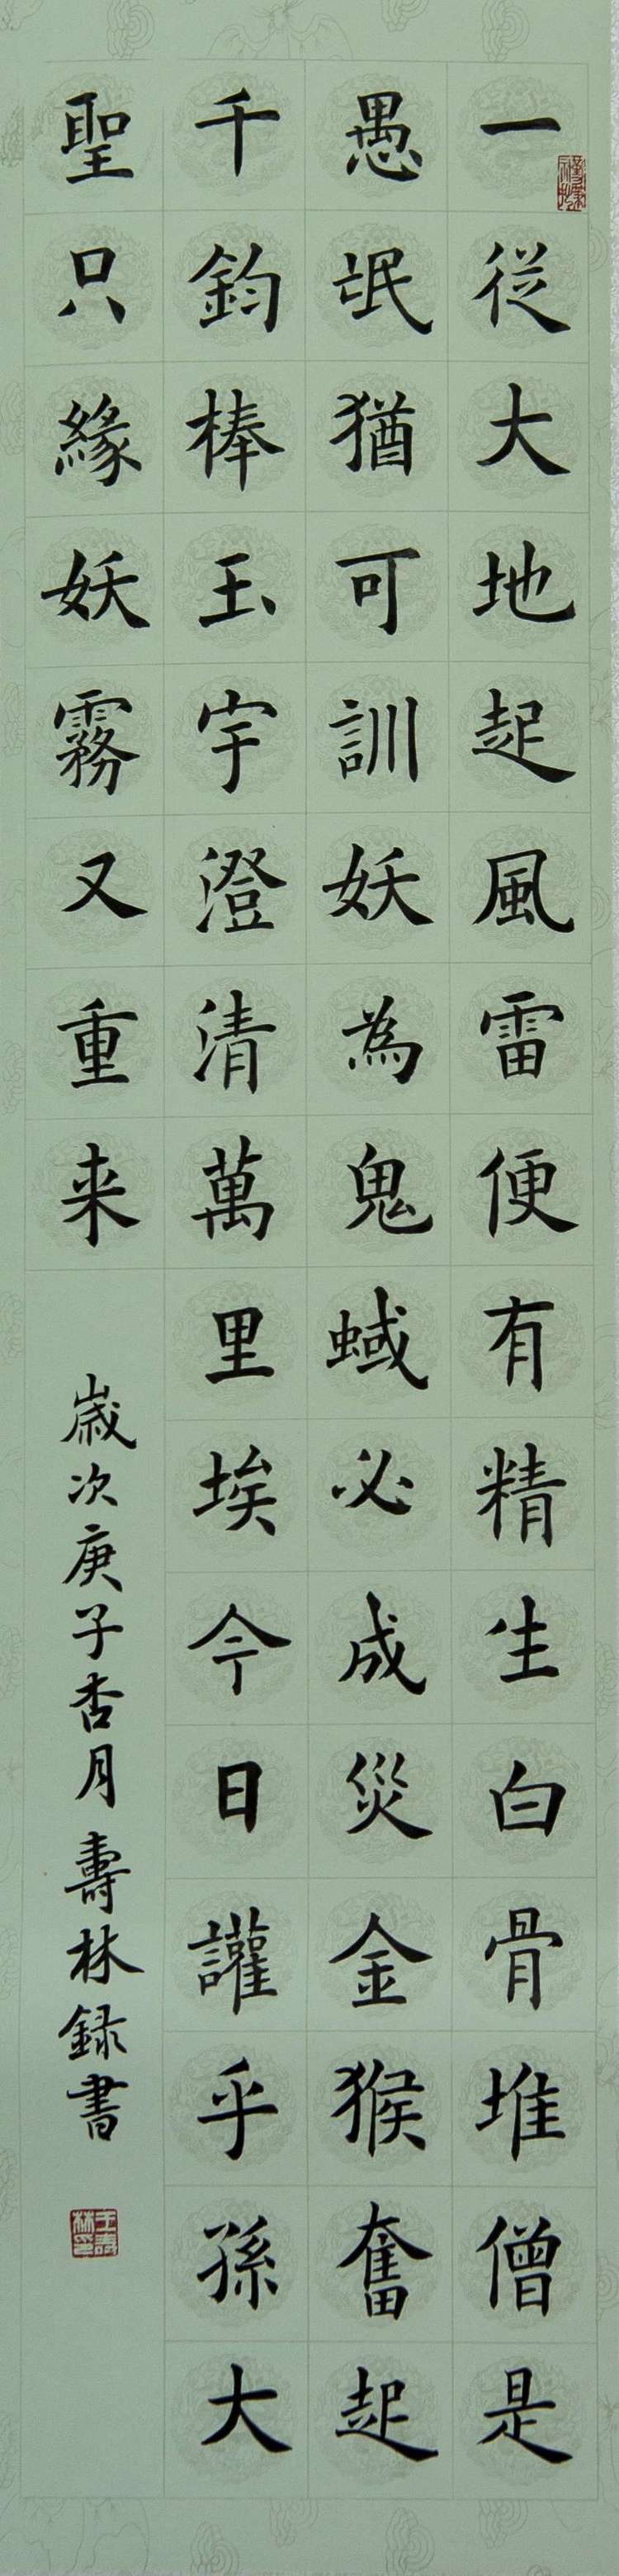 一從大地起風雷便有精生白骨堆僧是
愚氓猶可訓妖為鬼蜮必成災金猴奮起
千鈞棒玉宇澄清萬里埃今日讙乎孫大
聖只緣妖霧又重来
歲次庚子杏月壽林録書
王壽林印